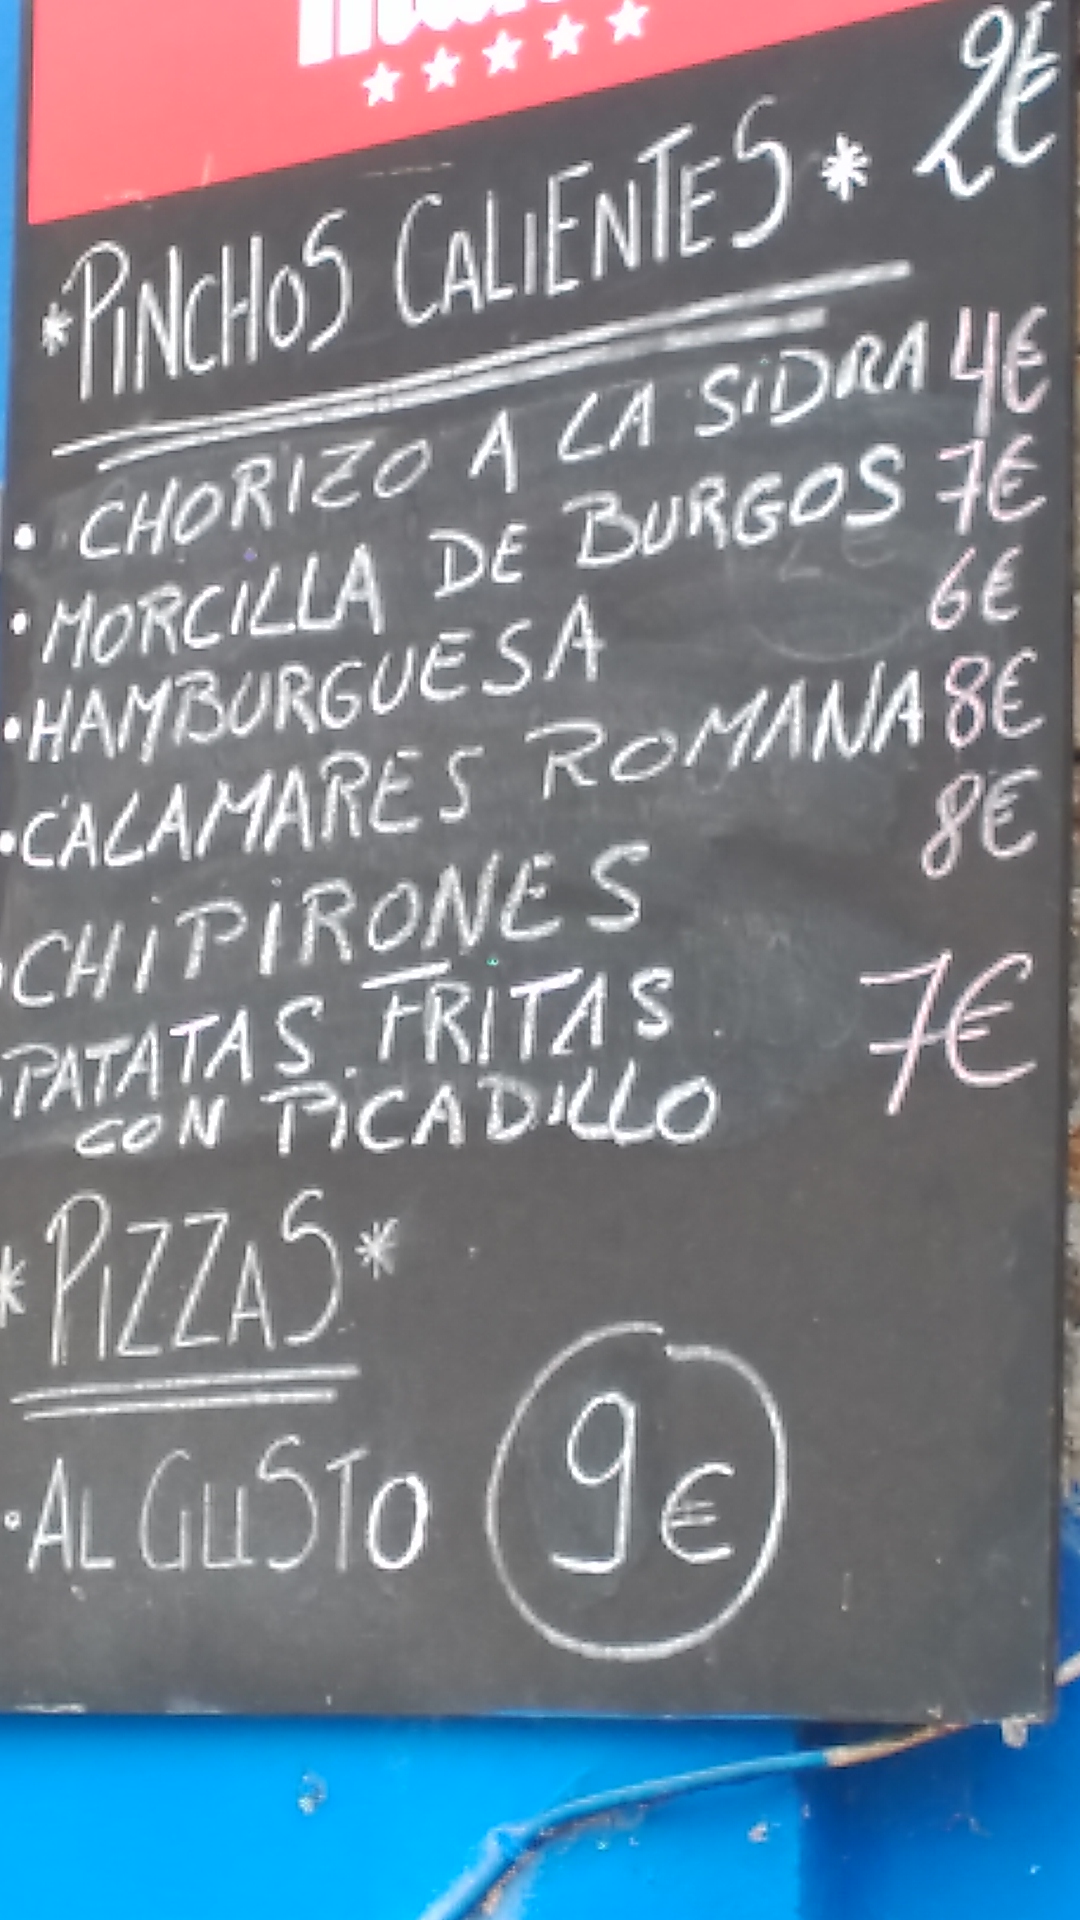 *PINCHOS CALIENTES* 2€
• CHORIZO A LA SIDRA 4€
• MORCILLA DE BURGOS 7€
• HAMBURGUESA 6€
• CALAMARES ROMANA 8€
CHIPIRONES 8€
PATATAS FRITAS 7€
CON PICADILLO
*PIZZAS*
• AL GUSTO 9€